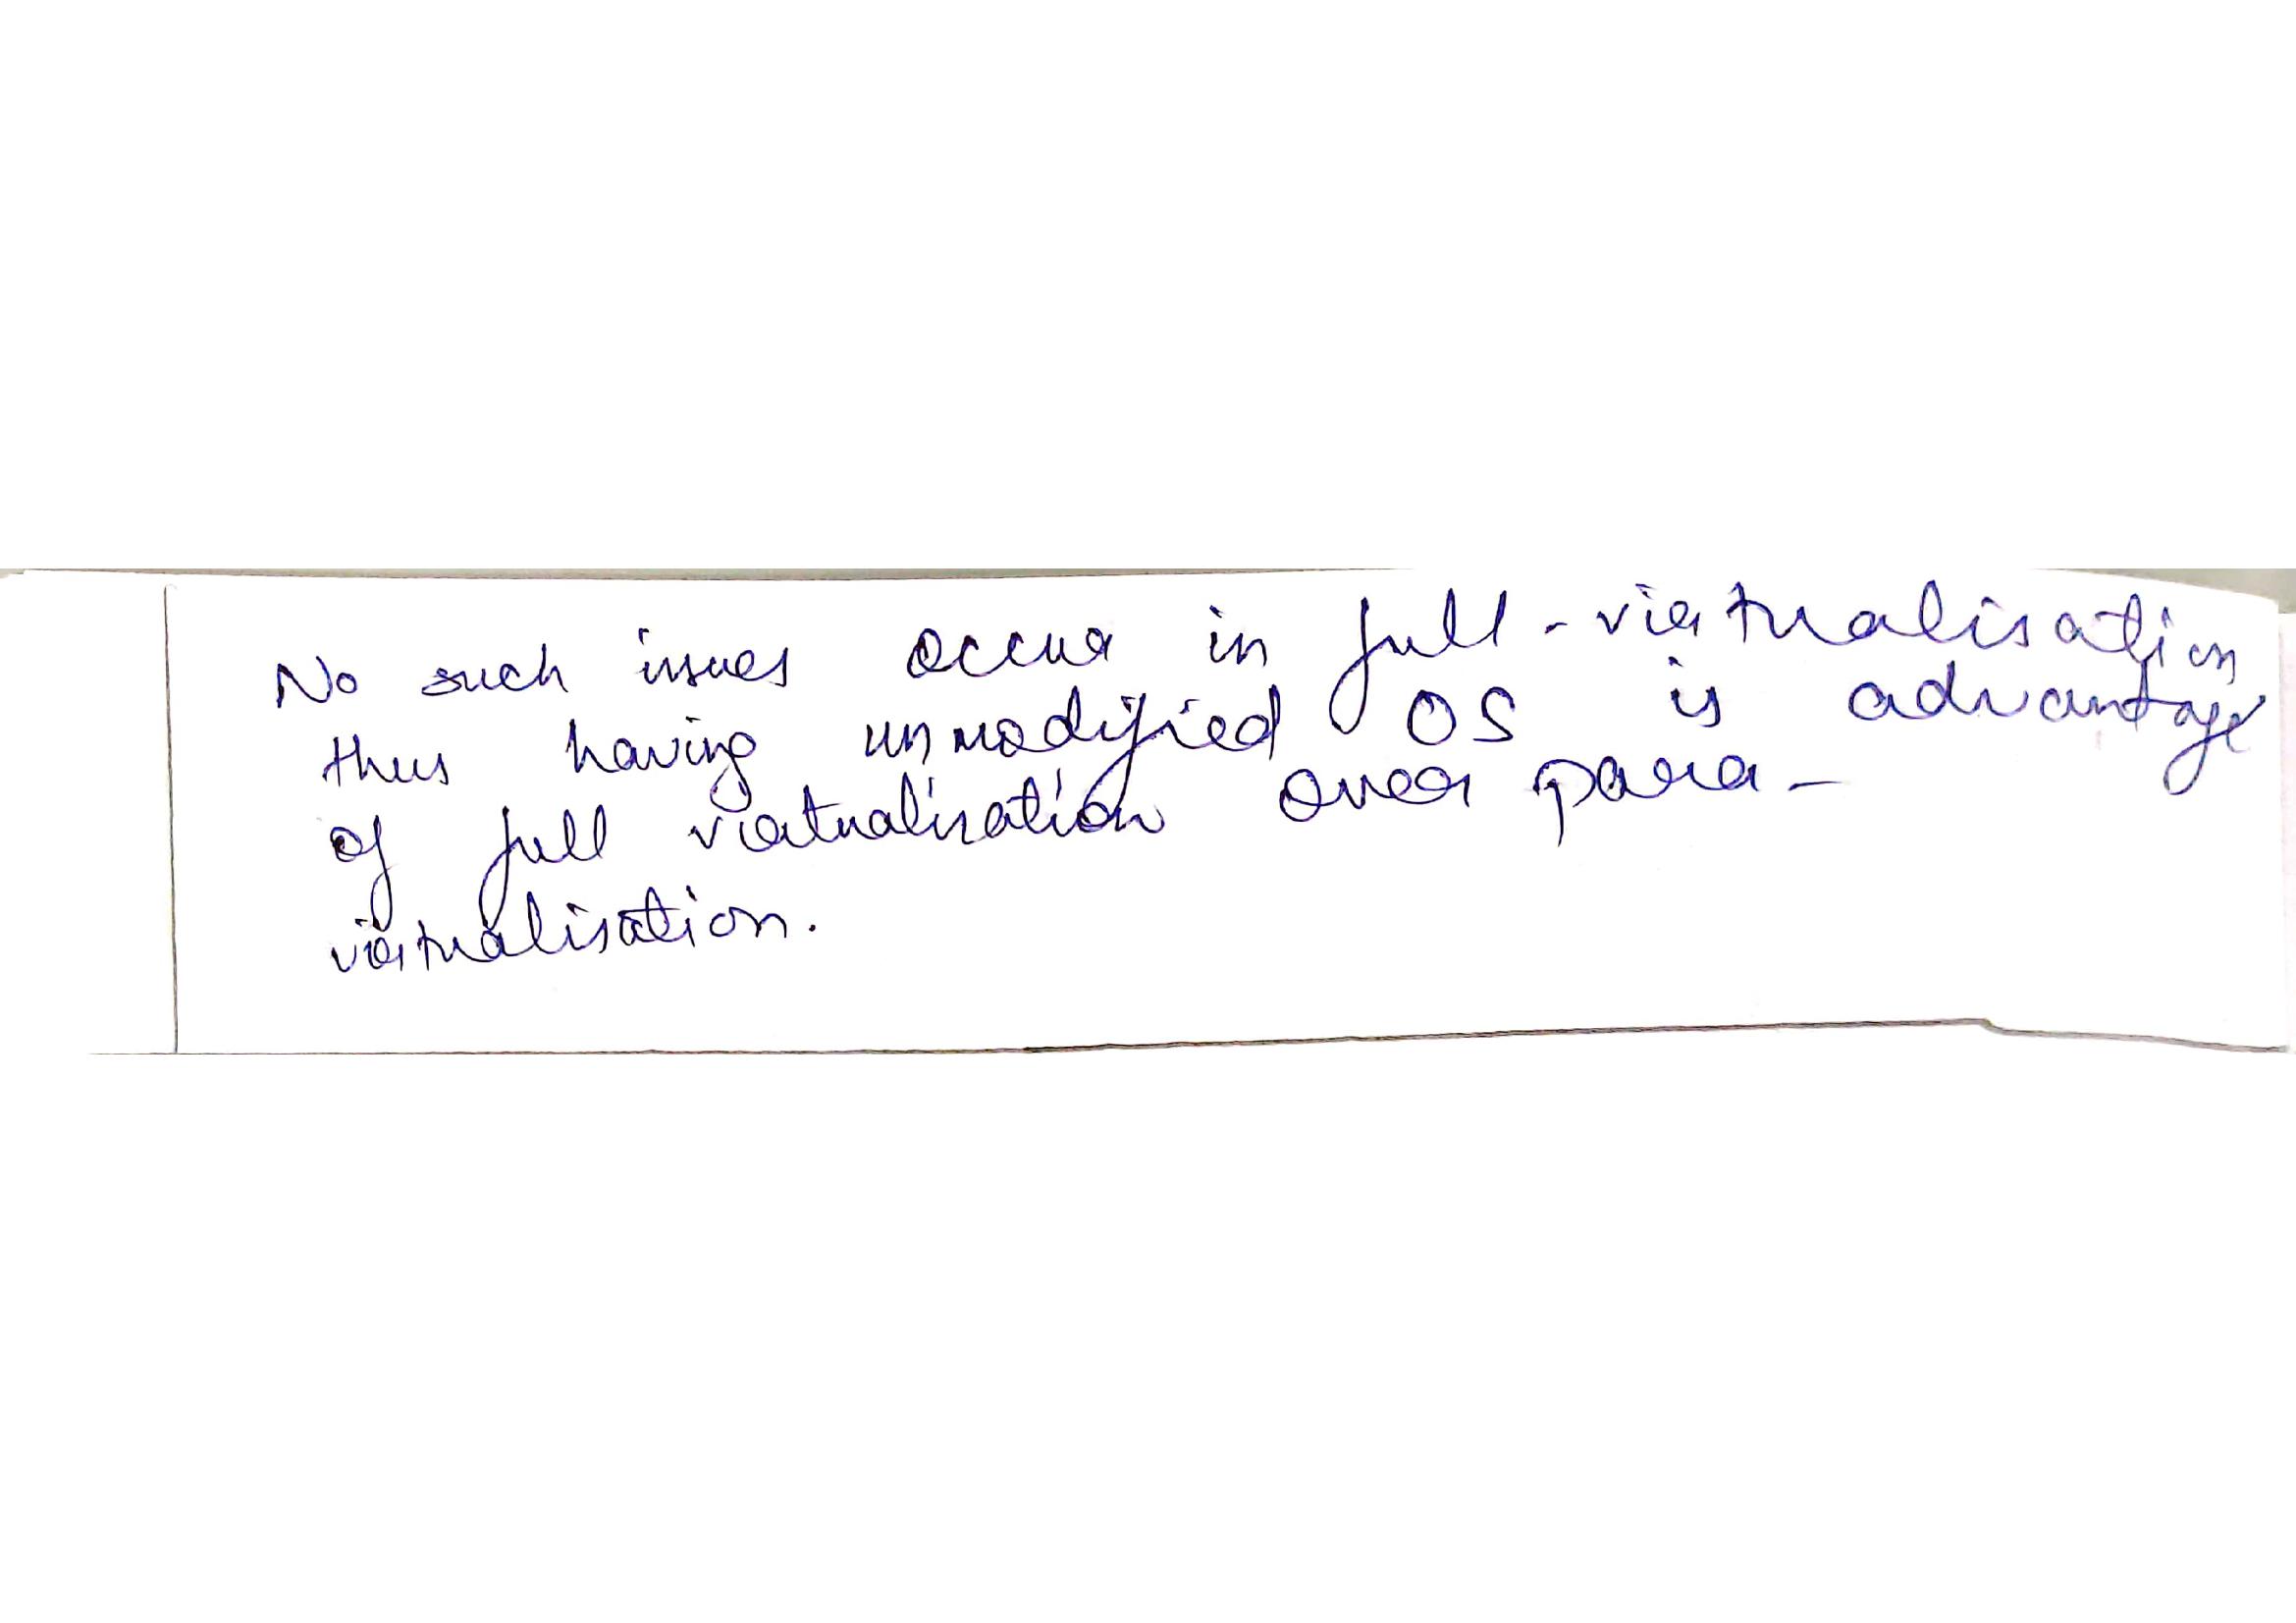 No such issues occur in full-virtualisation
thus having unmodified OS is advantage
of full virtualisation over para-
virtualisation.